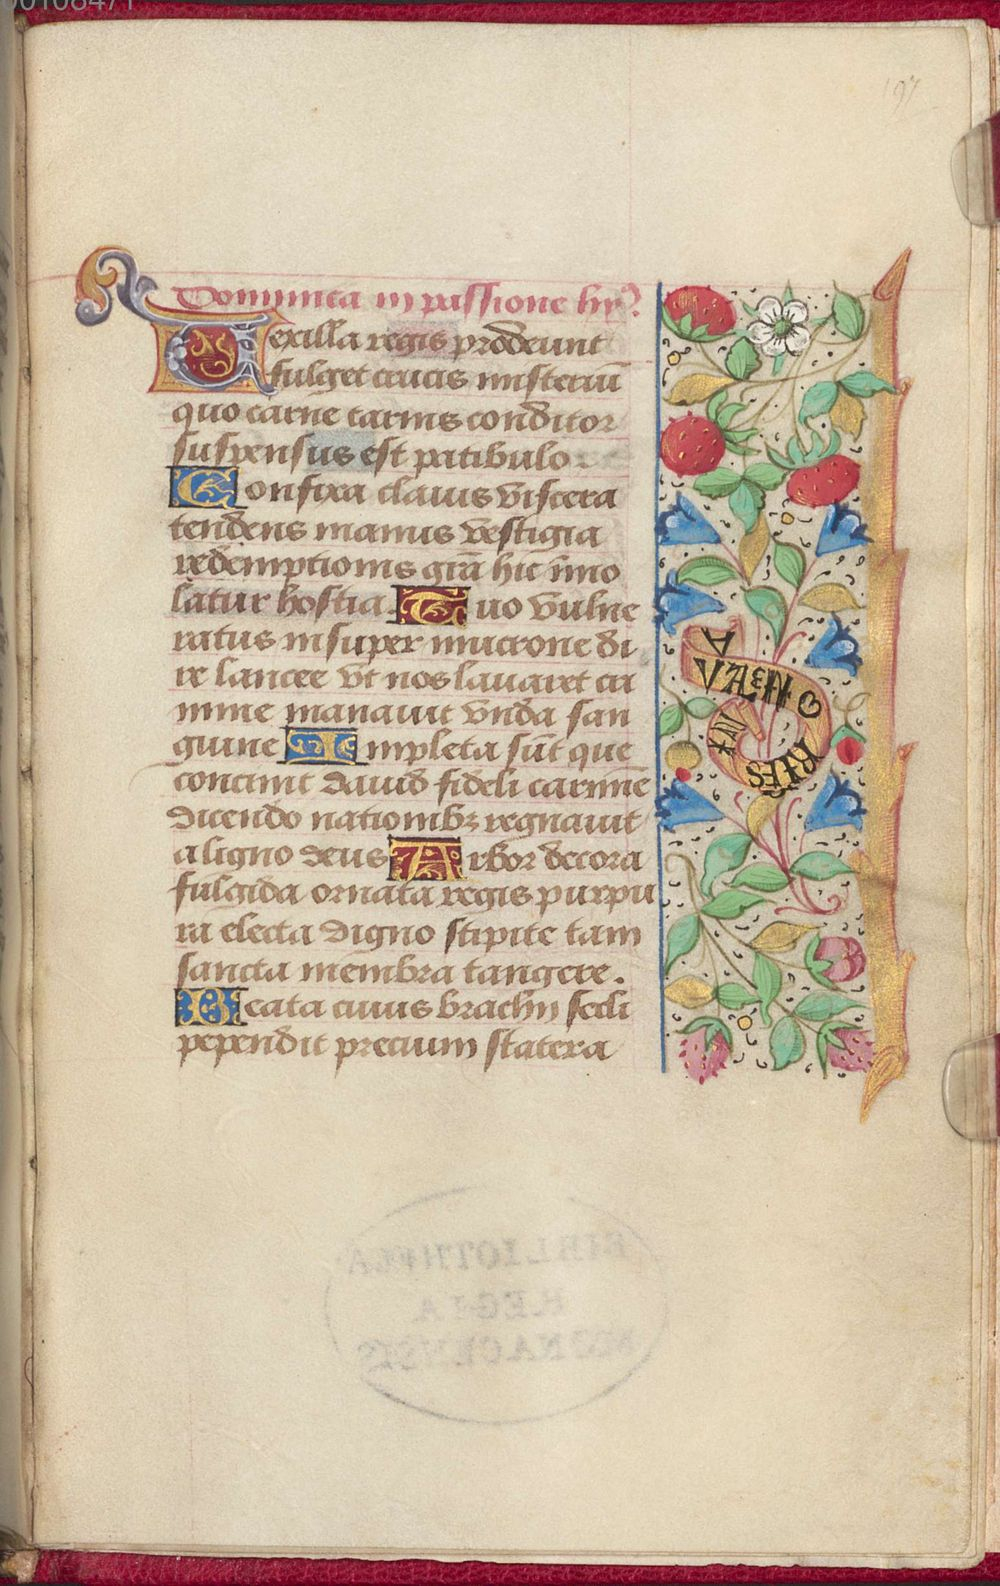 00108471
197
Dominica in passione hy?
Vexilla regis prodeunt
fulget crucis misteriū
quo carne carnis conditor
suspensus est patibulo
Confixa clavis viscera
tendens manus vestigia
redemptionis grā hic īmo
latur hostia. Quo vulne
ratus insuper mucrone di
re lancee vt nos lavaret cri
mine manavit vnda san
guine Impleta sūt que
concinit david fideli carmine
dicendo nationibȝ regnavit
a ligno deus Arbor decora
fulgida ornata regis purpu
ra electa digno stipite tam
sancta membra tangere.
Beata cuius brachijs secli
pependit precium statera
BIBLIOTHECA
REGIA
MONACENSIS